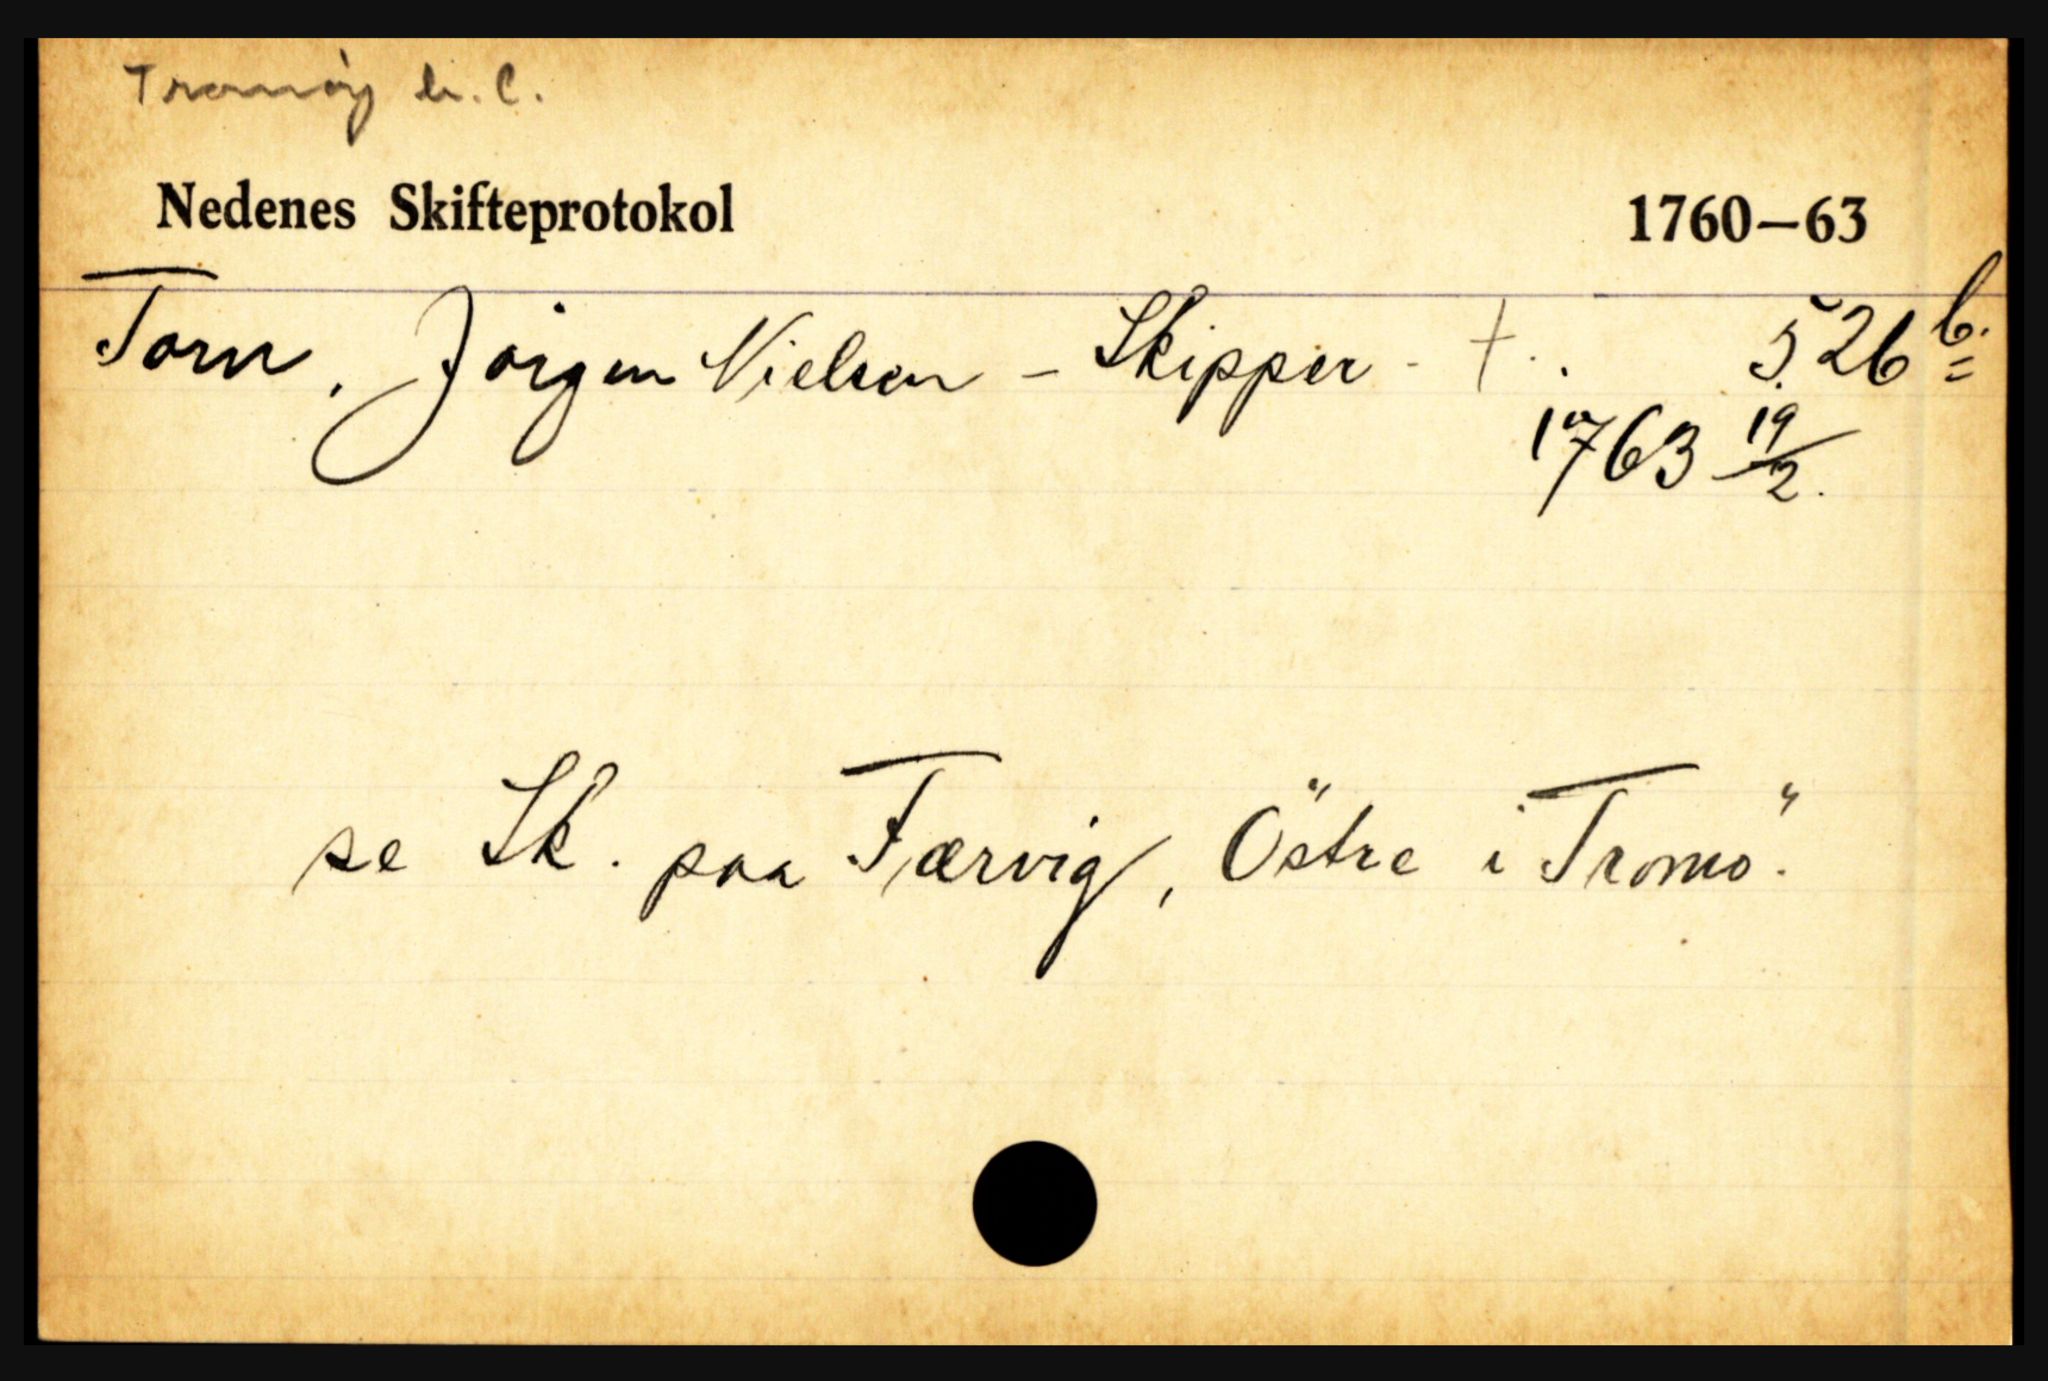 Tromöy h. C.
Nedenes Skifteprotokol 1760—63
Torn, Jörgen Nielsen - Skipper - † . 526 b.
1763 19/2.
se Sk. paa Færvig, Östre i Tromö.